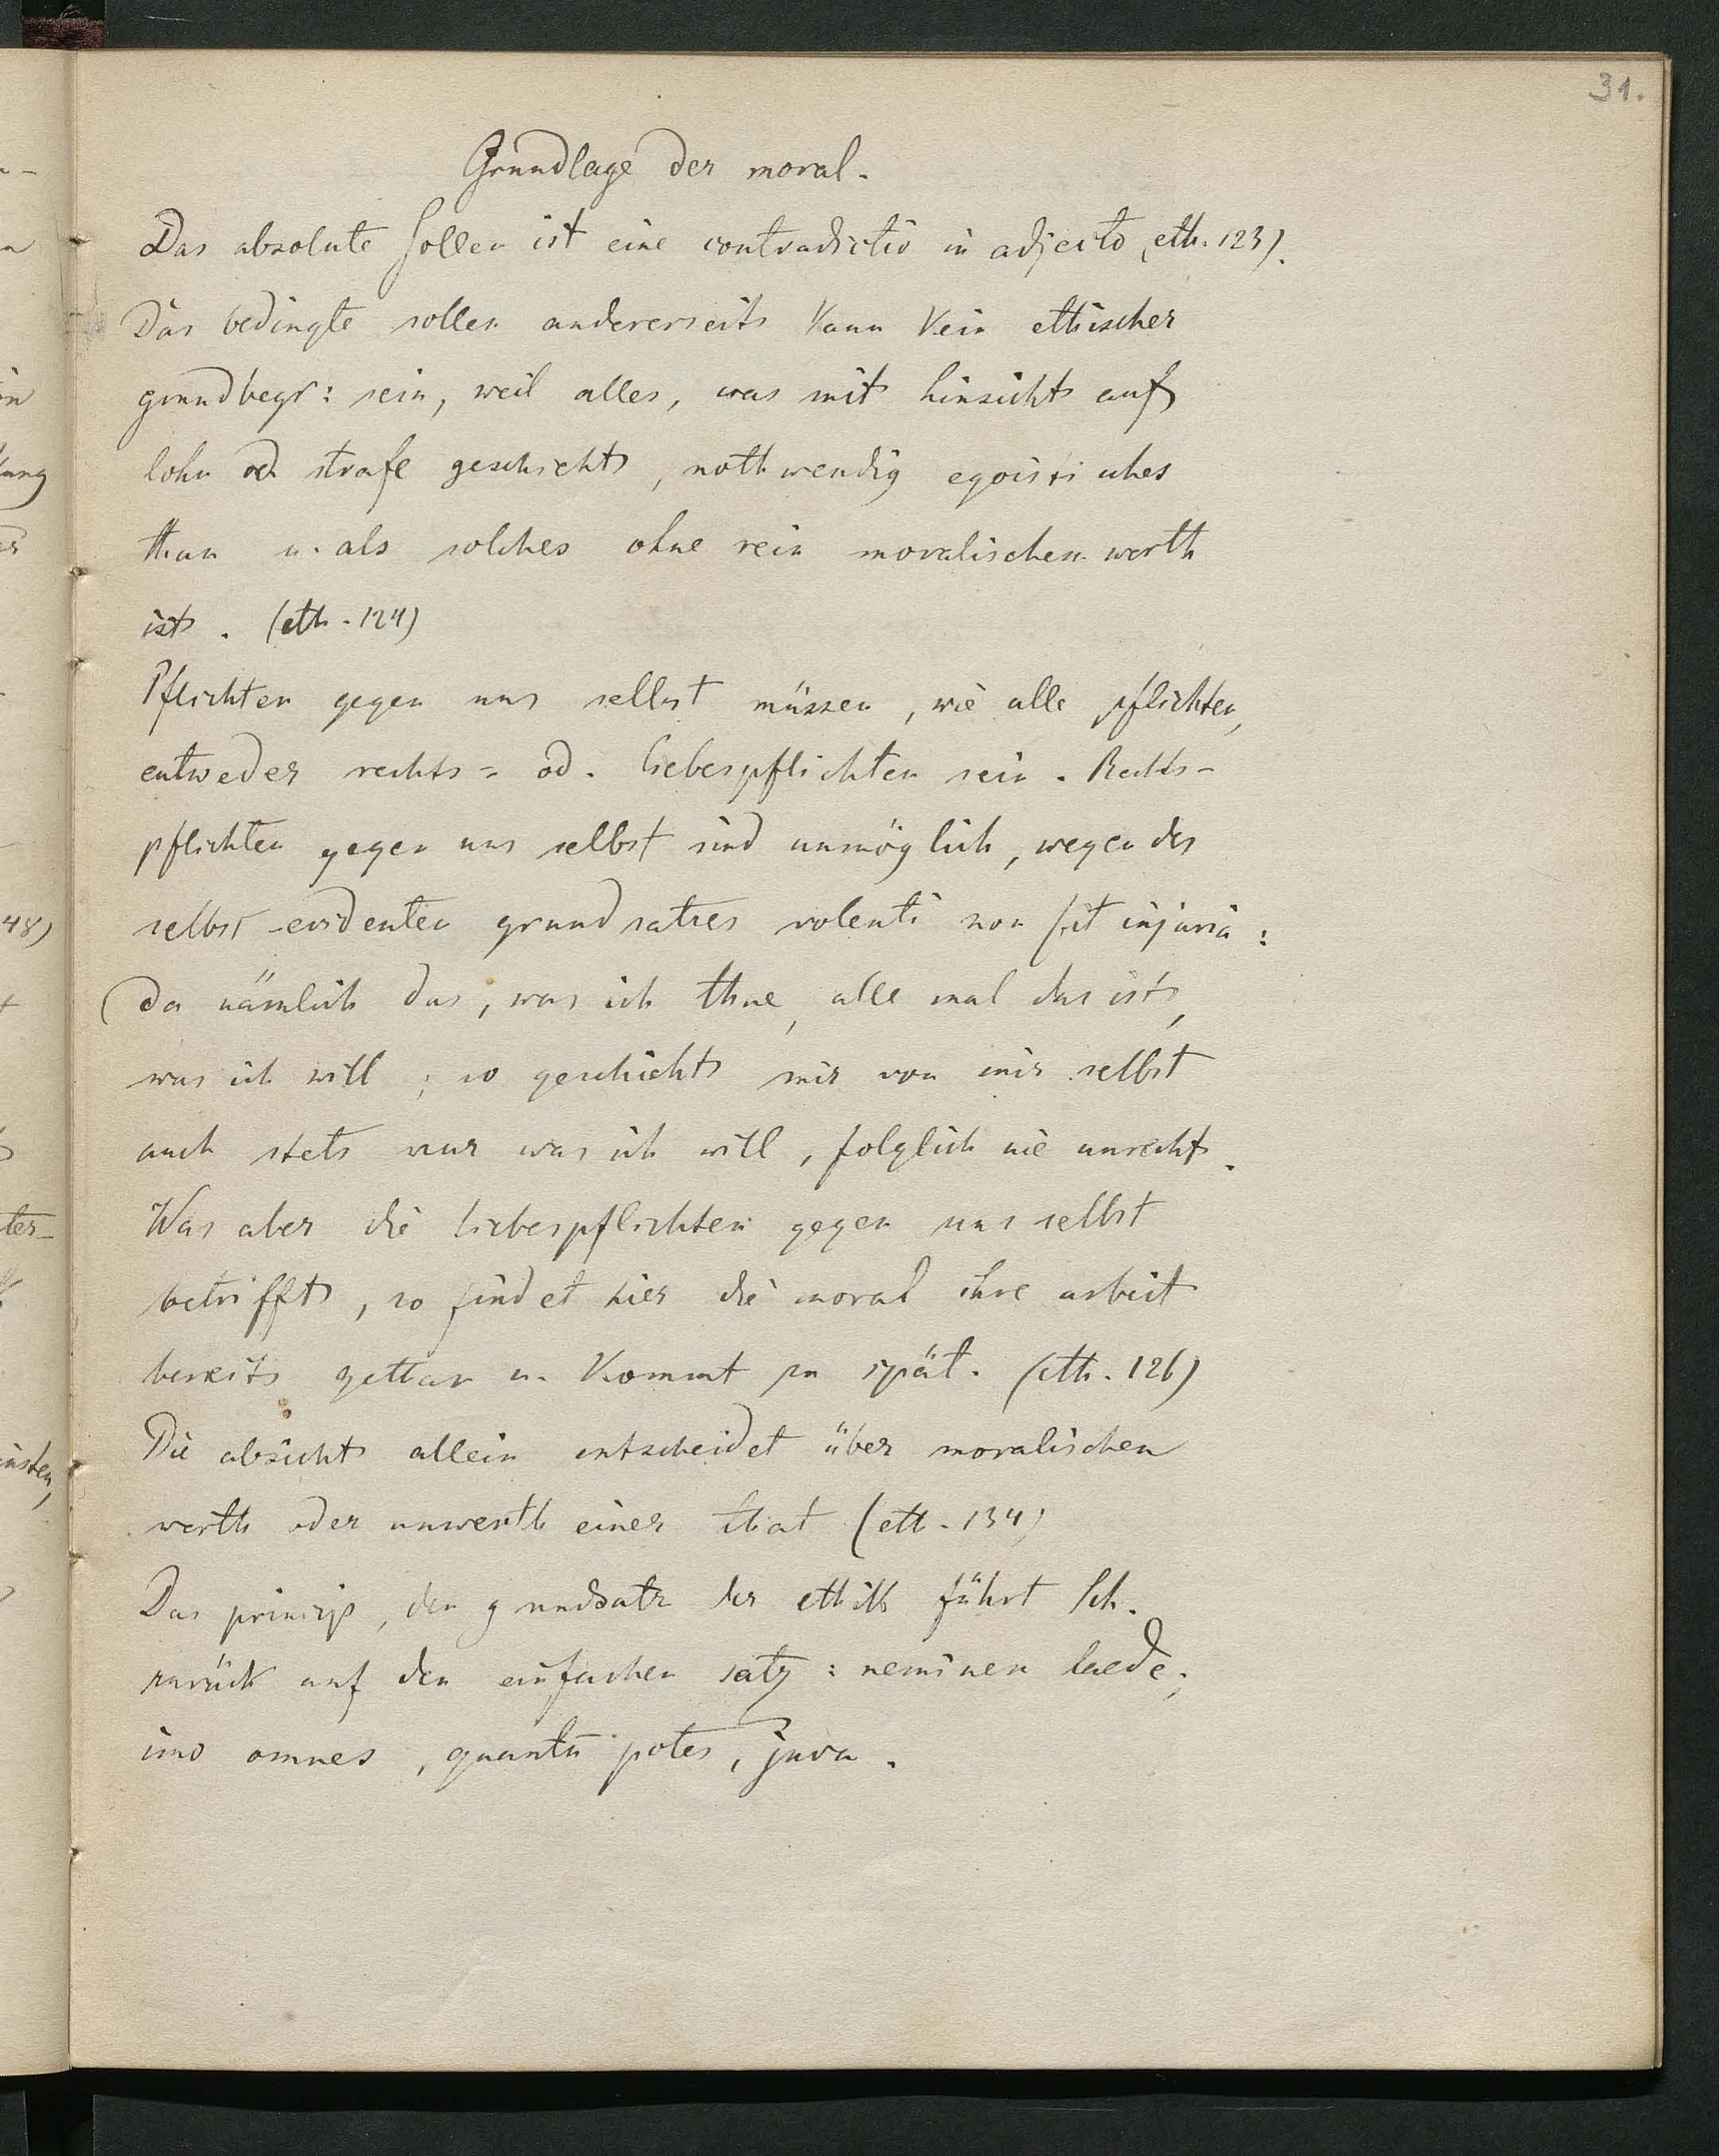 31.
Grundlage der moral.
Das absolute Sollen ist eine contradictio in adjecto (eth. 123).
Das bedingte sollen andererseits kann kein ethischer
grundbegr: sein, weil alles, was mit hinsicht auf
lohn od strafe geschieht, nothwendig egoistisches
thun u. als solches ohne rein moralischen werth
ist. (eth. 124)
Pflichten gegen uns selbst müssen, wie alle pflichten,
entweder rechts= od. liebespflichten sein. Rechts-
pflichten gegen uns selbst sind unmöglich, wegen des
selbst-evidenten grundsatzes volenti non fit injuria:
da nämlich das, was ich thue, alle mal das ist,
was ich will; so geschieht mir von mir selbst
auch stets nur was ich will, folglich nie unrecht.
Was aber die liebespflichten gegen uns selbst
betrifft, so findet hier die moral ihre arbeit
bereits gethan u. kommt zu spät. (eth. 126)
Die absicht allein entscheidet über moralischen
werth oder unwerth einer that (eth. 134)
Das princip, den grundsatz der ethik führt Sch.
zurück auf den einfachen satz: neminem laede;
imo omnes, quantū potes, juva.
48)
ter-